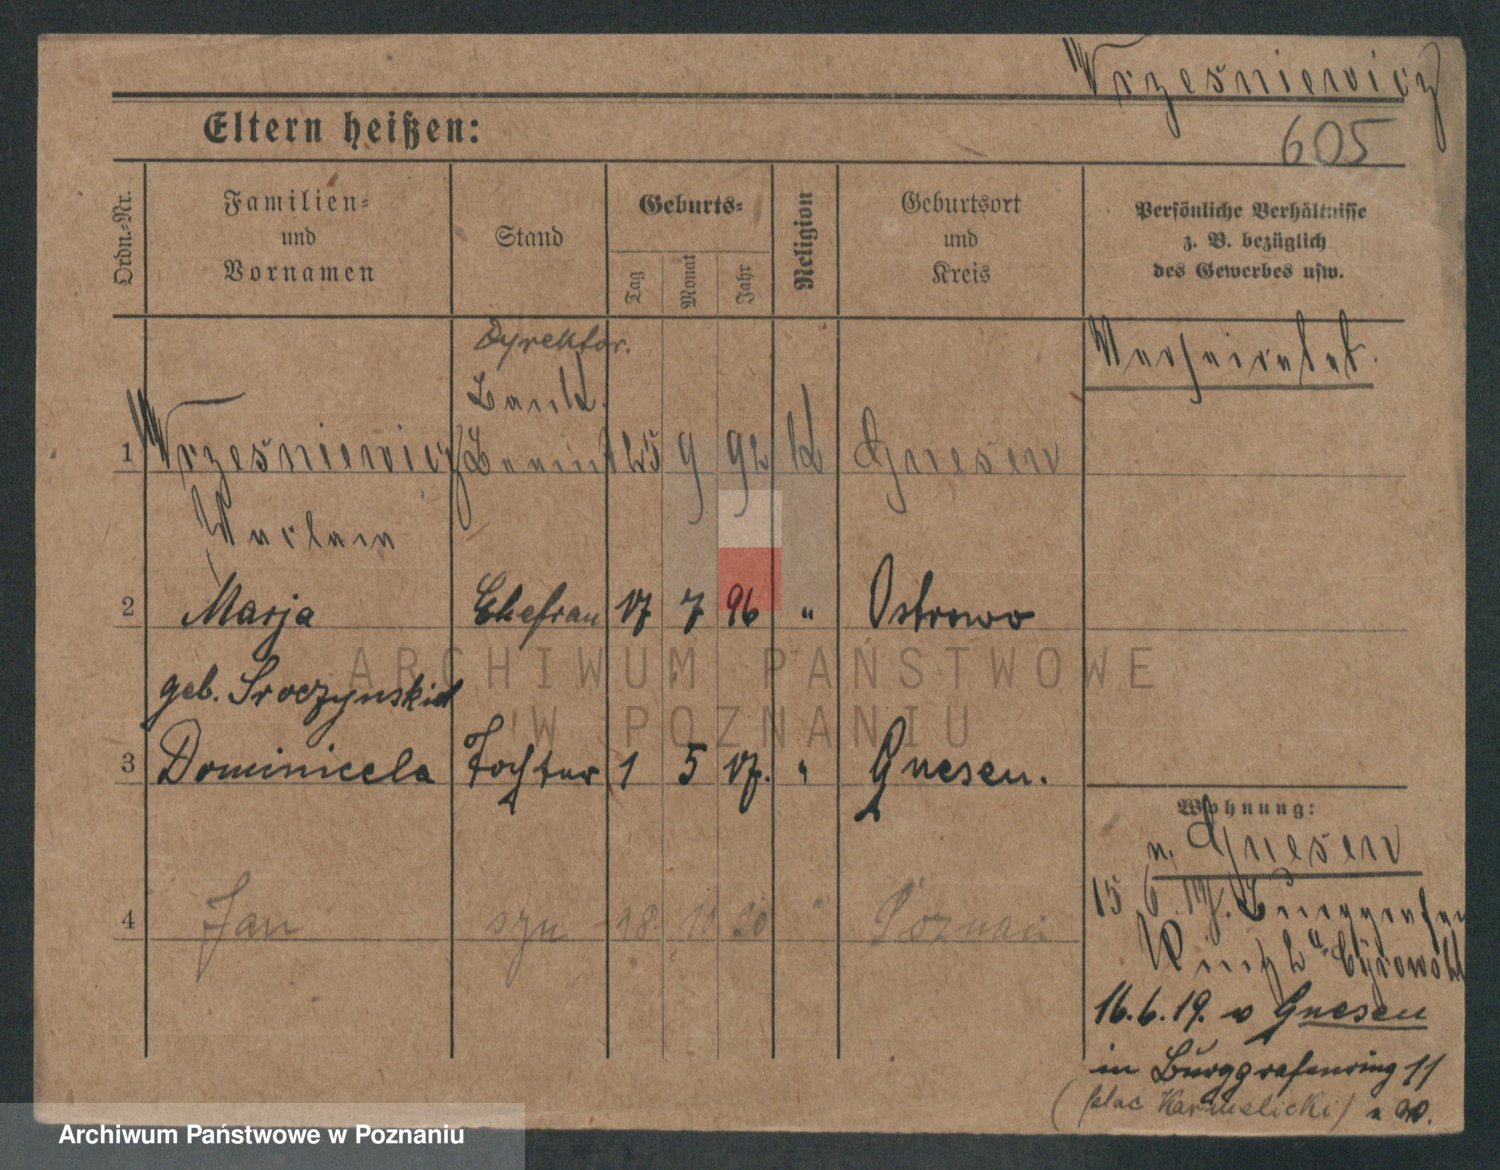 Wrześniewicz
605
Eltern heißen:
Ordn.-Nr.
Familien-
und
Vornamen
Stand
Geburts-
Tag
Monat
Jahr
Religion
Geburtsort
und
Kreis
Persönliche Verhältnisse
z. B. bezüglich
des Gewerbes usw.
Dyrektor.
Verheiratet.
Bank
1 Wrześniewicz 25 9 92 k Gnesen
Waclaw
2 Marja Ehefrau 17 7 96 " Ostrowo
geb. Sroczynski
3 Dominicela Tochter 1 5 17. " Gnesen.
Wohnung:
n. Gnesen
15 6. 17. Burggrafen
Ring
4 Jan syn 18 11 20 " Poznań
16.6.19. v Gnesen
in Burggrafenring 11
(plac Karmelicki)
ARCHIWUM PAŃSTWOWE
W POZNANIU
Archiwum Państwowe w Poznaniu